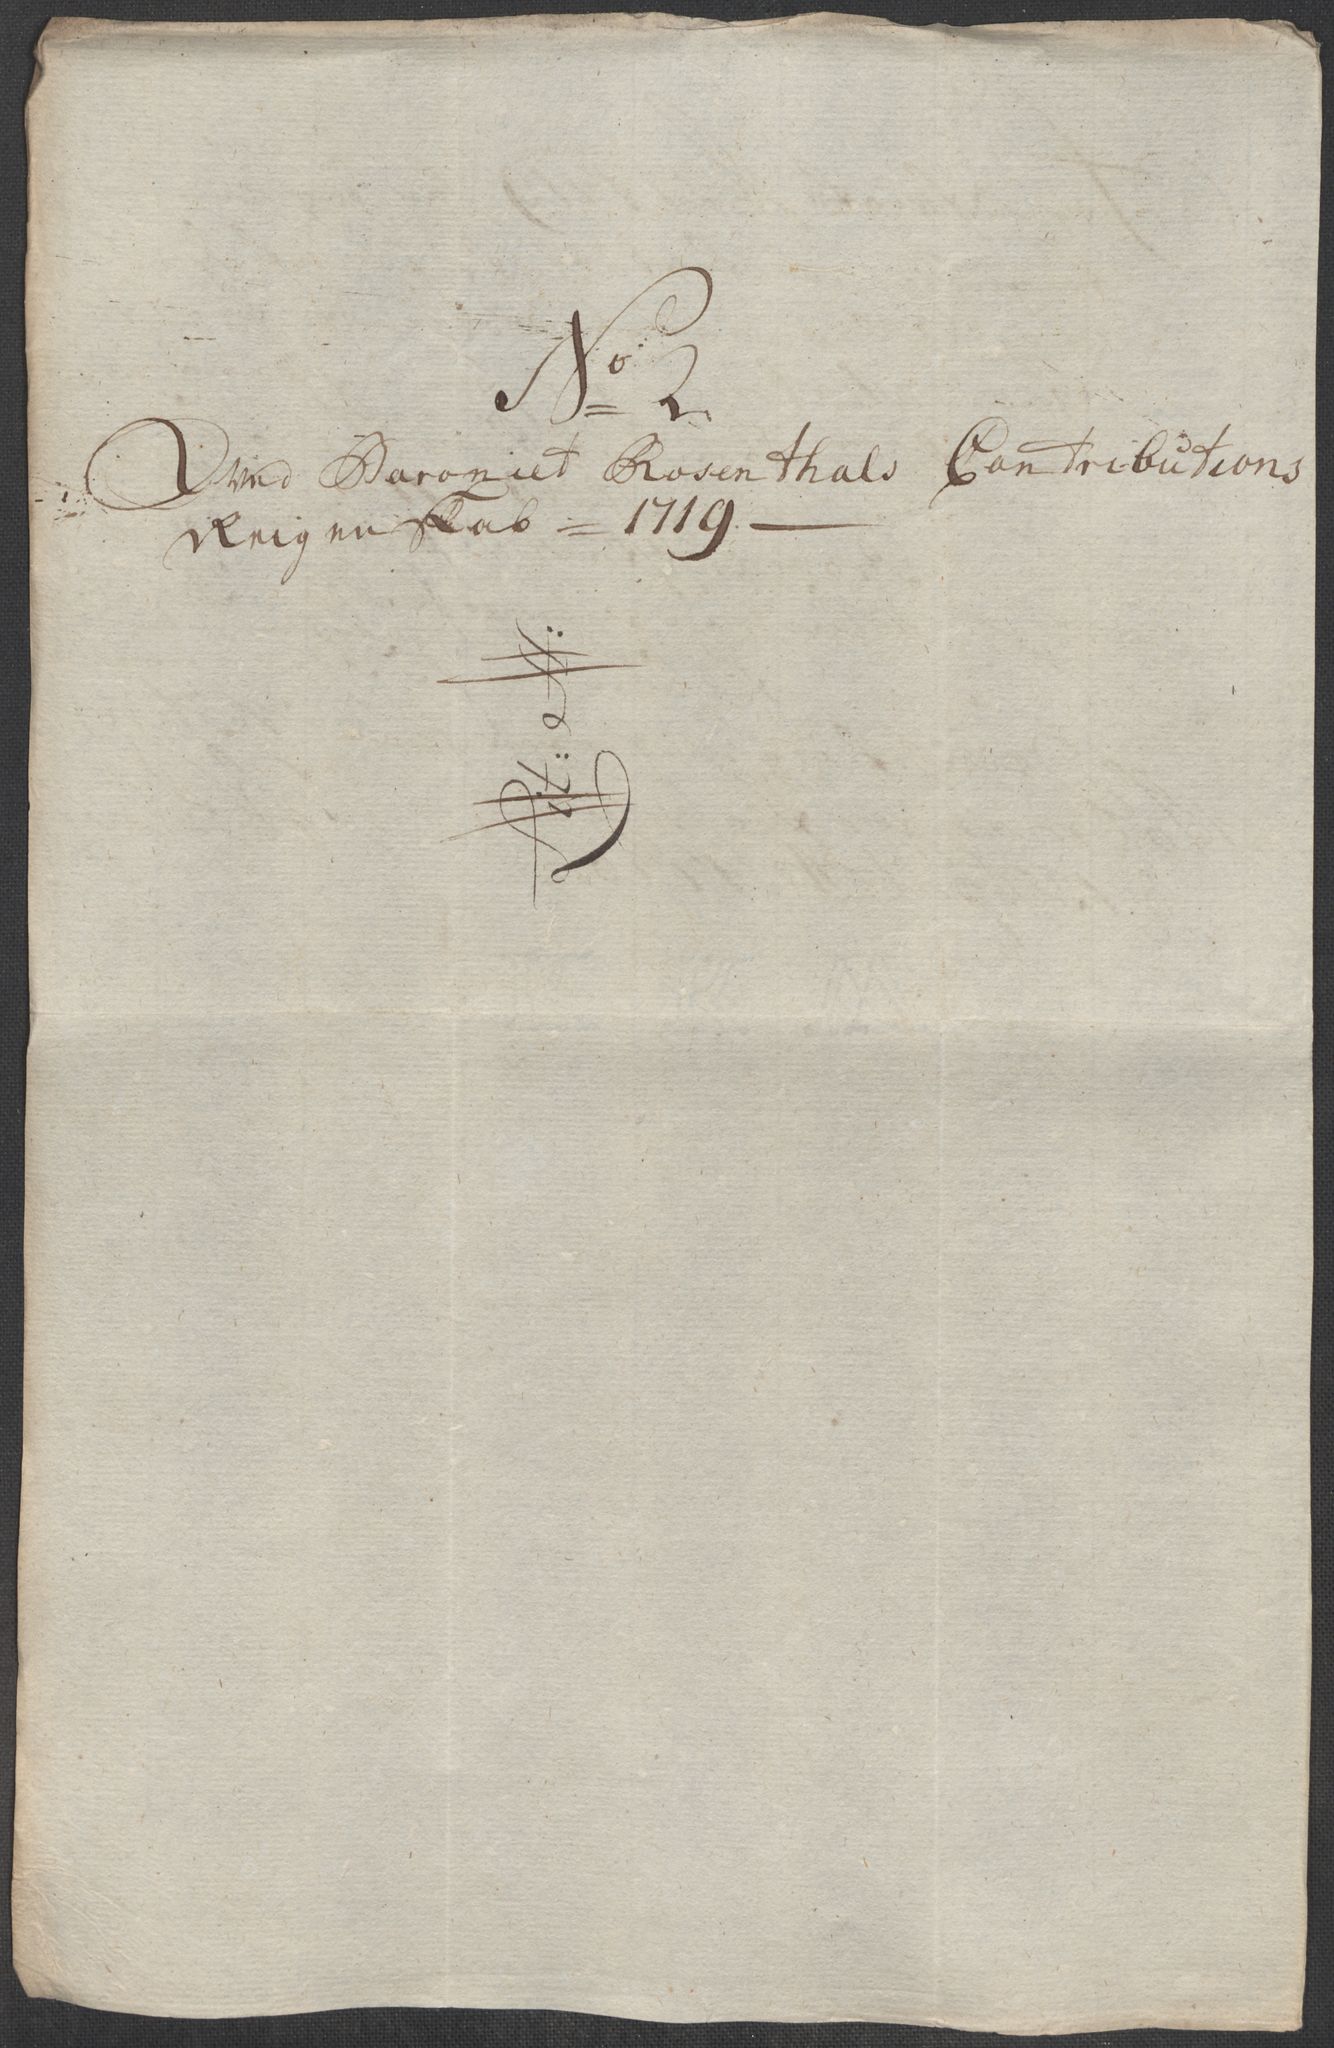 No 2
Wed Baroniet Rosenthals Contributions
Reigenskab = 1719
Lit: L: